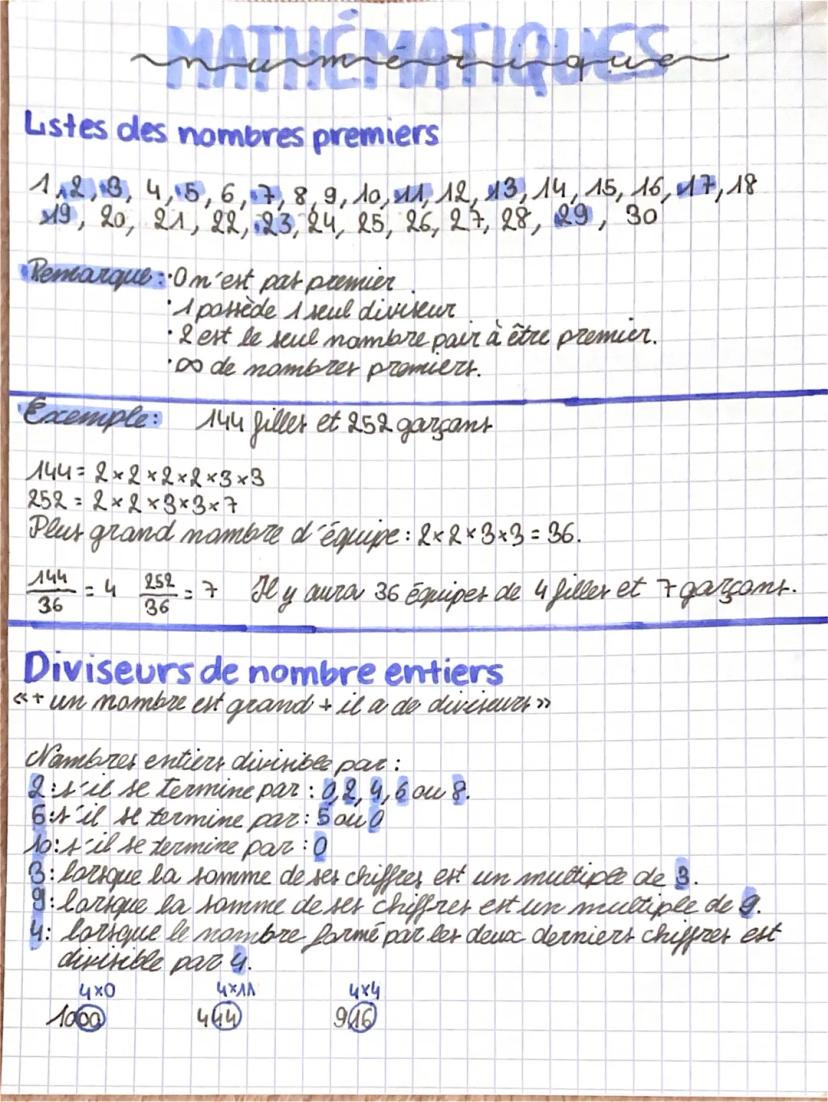 MATHÉMATIQUES
numérique
Listes des nombres premiers
1, 2, 3, 4, 5, 6, 7, 8, 9, 10, 11, 12, 13, 14, 15, 16, 17, 18
19, 20, 21, 22, 23, 24, 25, 26, 27, 28, 29, 30
Remarque: · 0 n'est pas premier.
· 1 possède 1 seul diviseur
· 2 est le seul nombre pair à être premier.
· ∞ de nombres premiers.
Exemple: 144 filles et 252 garçons
144 = 2×2×2×2×3×3
252 = 2×2×3×3×7
Plus grand nombre d'équipe : 2×2×3×3 = 36.
144/36 = 4 252/36 = 7 Il y aura 36 équipes de 4 filles et 7 garçons.
Diviseurs de nombre entiers
«+ un nombre est grand + il a de diviseurs»
Nombres entiers divisible par :
2 : s'il se termine par : 0, 2, 4, 6 ou 8.
6 : s'il se termine par : 5 ou 0
10 : s'il se termine par : 0
3 : lorsque la somme de ses chiffres est un multiple de 3.
9 : lorsque la somme de ses chiffres est un multiple de 9.
4 : lorsque le nombre formé par les deux derniers chiffres est
divisible par 4.
4×0 4×11 4×4
1000 444 916